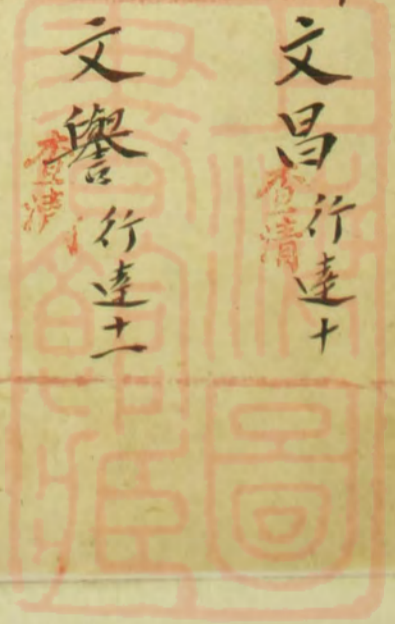 文昌行達十
查清
文譽行達十一
查清